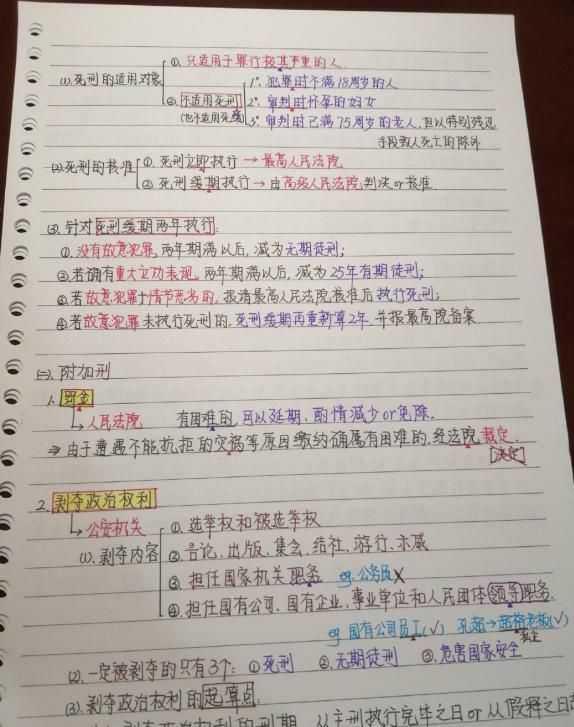 ①. 只适用于罪行极其严重的人
(1). 死刑的适用对象
②. 不适用死刑
(也不适用死缓)
1°. 犯罪时不满18周岁的人
2°. 审判时怀孕的妇女
3°. 审判时已满75周岁的老人, 但以特别残忍
手段致人死亡的除外
(2) 死刑的核准
①. 死刑立即执行 → 最高人民法院
②. 死刑缓期执行 → 由高级人民法院判决or核准
(3). 针对死刑缓期两年执行:
①. 没有故意犯罪, 两年期满以后, 减为无期徒刑;
②若确有重大立功表现, 两年期满以后, 减为25年有期徒刑;
③若故意犯罪+情节恶劣的, 报请最高人民法院核准后执行死刑;
④若故意犯罪未执行死刑的, 死刑缓期再重新算2年, 并报最高院备案
(二). 附加刑
1. 罚金
→ 人民法院 有困难的, 可以延期、酌情减少or免除.
⇒ 由于遭遇不能抗拒的灾祸等原因缴纳确属有困难的, 经法院裁定.
[决定]
2. 剥夺政治权利
→ 公安机关
(1). 剥夺内容
①. 选举权和被选举权
②. 言论, 出版, 集会, 结社, 游行, 示威
③. 担任国家机关职务 eg. 公务员X
④. 担任国有公司、国有企业, 事业单位和人民团体领导职务.
eg 国有公司员工(√)
(2). 一定被剥夺的只有3个: ①死刑 ②. 无期徒刑 ③. 危害国家安全
(3). 剥夺政治权利的起算点